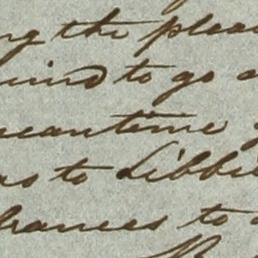 ng the plea
mind to go a
meantime
as to Libbie
hances to